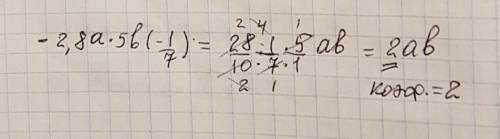 -2,8a·5b(-1/7) = 28·1·5/10·7·1 ab = 2ab
коэф. = 2